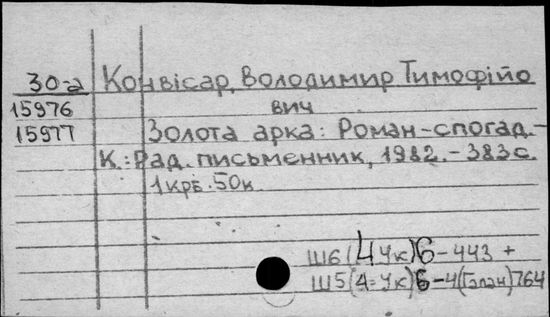 30-а Конвісар, Володимир Тимофійо
15976 вич
15977 Золота арка: Роман-спогад.-
К.: Рад. письменник, 1982.-383с.
1крб.50к
Ш6(4Ук)6-443 +
Ш5(4=Ук)6-4(Галан)764